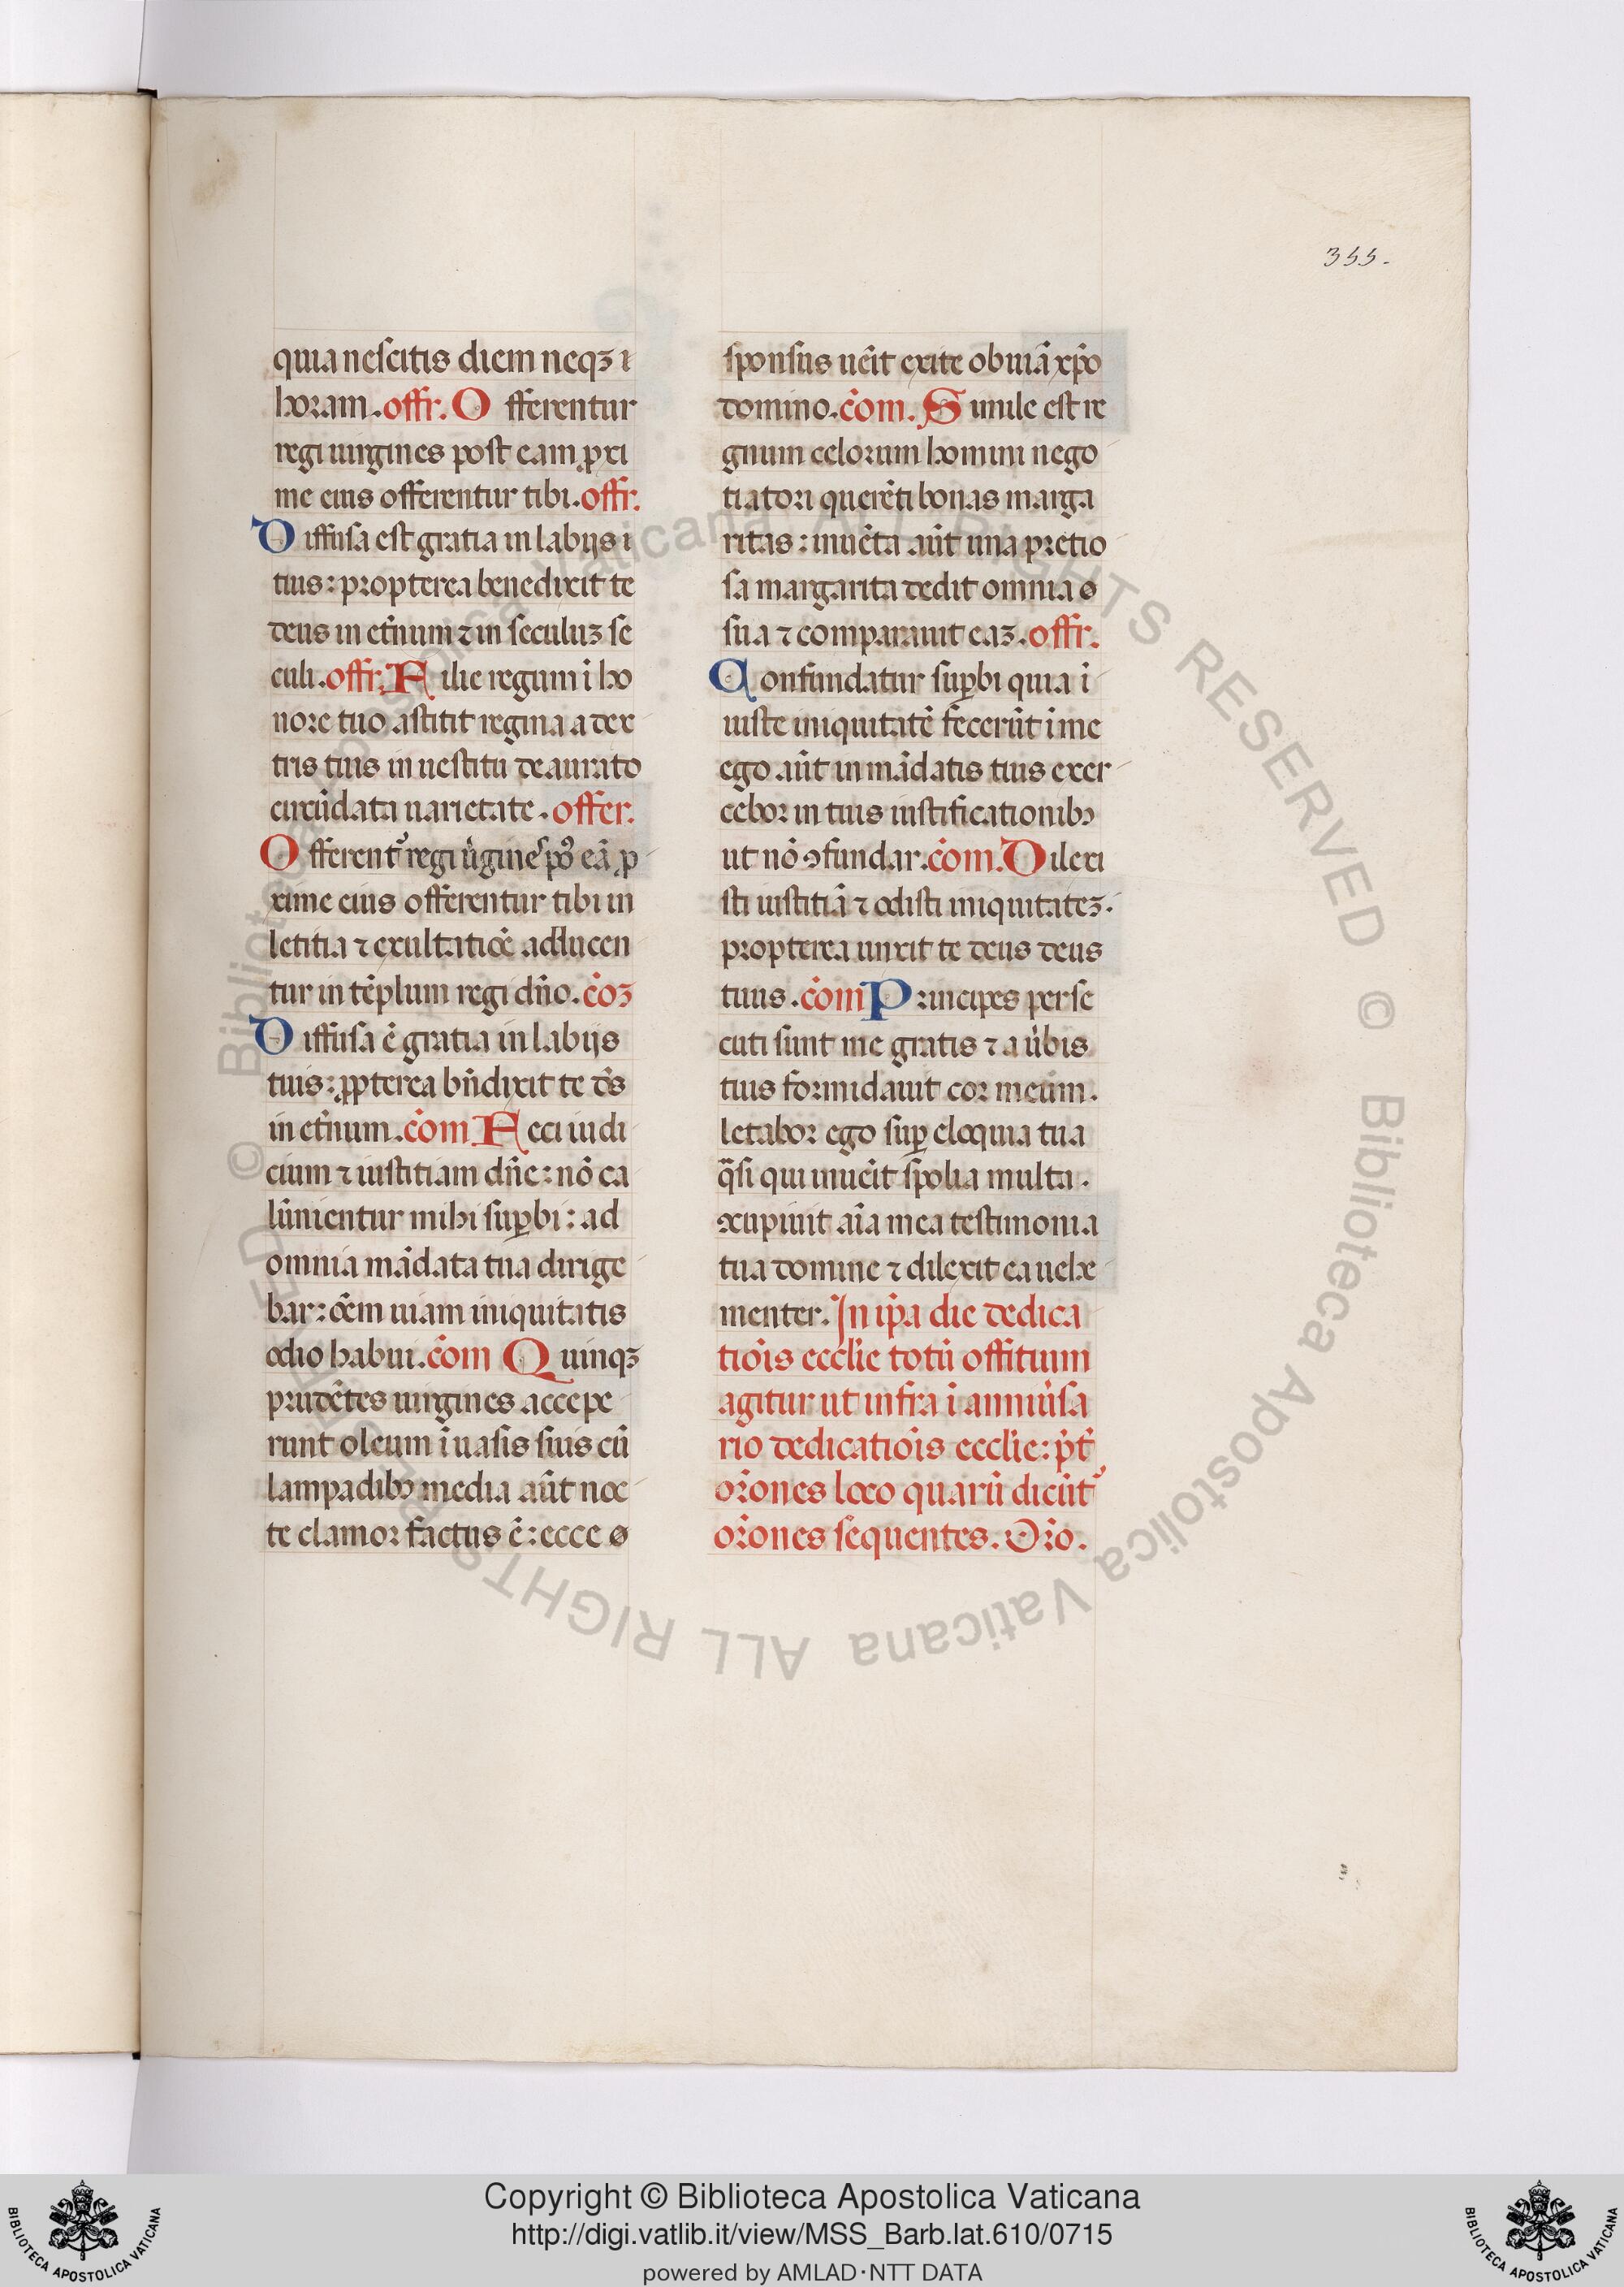 355.
quia nescitis diem neqꝫ i
horam. offr. O fferentur
regi uirgines post eam ꝓxi
me eius offerentur tibi. offr.
D iffusa est gratia in labijs i
tuis: propterea benedixit te
deus in et̄num ⁊ in seculuꝫ se
culi. offr. F ilie regum ī ho
nore tuo astitit regina a dex
tris tuis in uestitu deaurato
circūdata uarietate. offer.
O fferent᷑ regi ūgines pꝰ eā ꝓ
xime eius offerentur tibi in
letitia ⁊ exultatiōe adducen
tur in tēplum regi dn̄o. cōꝫ
D iffusa ē gratia in labijs
tuis: ꝓpterea bn̄dixit te d̄s
in et̄num. cōm F eci iudi
cium ⁊ iustitiam dn̄e: nō ca
lūnientur mihi suꝑbi: ad
omnia mādata tua dirige
bar: oēm uiam iniquitatis
odio habui. cōm Q uinqꝫ
prudētes uirgines accepe
runt oleum ī uasis suis cū
lampadibꝫ media aūt noc
te clamor factus ē: ecce ø
sponsus uēit exite obuiā xp̄o
domino. cōm. S imile est re
gnum celorum homini nego
tiatori querēti bonas marga
ritas: inuēta aūt una pretio
sa margarita dedit omnia ø
sua ⁊ comparauit eaꝫ. offr.
C onfundatur suꝑbi quia i
iuste iniquitatē fecerūt ī me
ego aūt in mādatis tuis exer
cebor in tuis iustificationibꝫ
ut nō ꝯfundar. cōm. D ilexi
sti iustitiā ⁊ odisti iniquitateꝫ.
propterea unxit te deus deus
tuus. cōm P rincipes perse
cuti sunt me gratis ⁊ a ūbis
tuis formidauit cor meum.
letabor ego suꝑ eloquia tua
q̄si qui inuēit spolia multa.
ꝯcupiuit aīa mea testimonia
tua domine ⁊ dilexit ea uehe
menter. In ip̄a die dedica
tiōis eccl̄ie totū offitium
agitur ut infra ī anniūsa
rio dedicatiōis eccl̄ie: p̄t
or̄ones loco quarū dicūt᷑
or̄ones sequentes. Or̄o.
© Biblioteca Apostolica Vaticana ALL RIGHTS RESERVED © Biblioteca Apostolica Vaticana ALL RIGHTS RESERVED
BIBLIOTECA APOSTOLICA VATICANA
Copyright © Biblioteca Apostolica Vaticana
http://digi.vatlib.it/view/MSS_Barb.lat.610/0715
powered by AMLAD·NTT DATA
BIBLIOTECA APOSTOLICA VATICANA